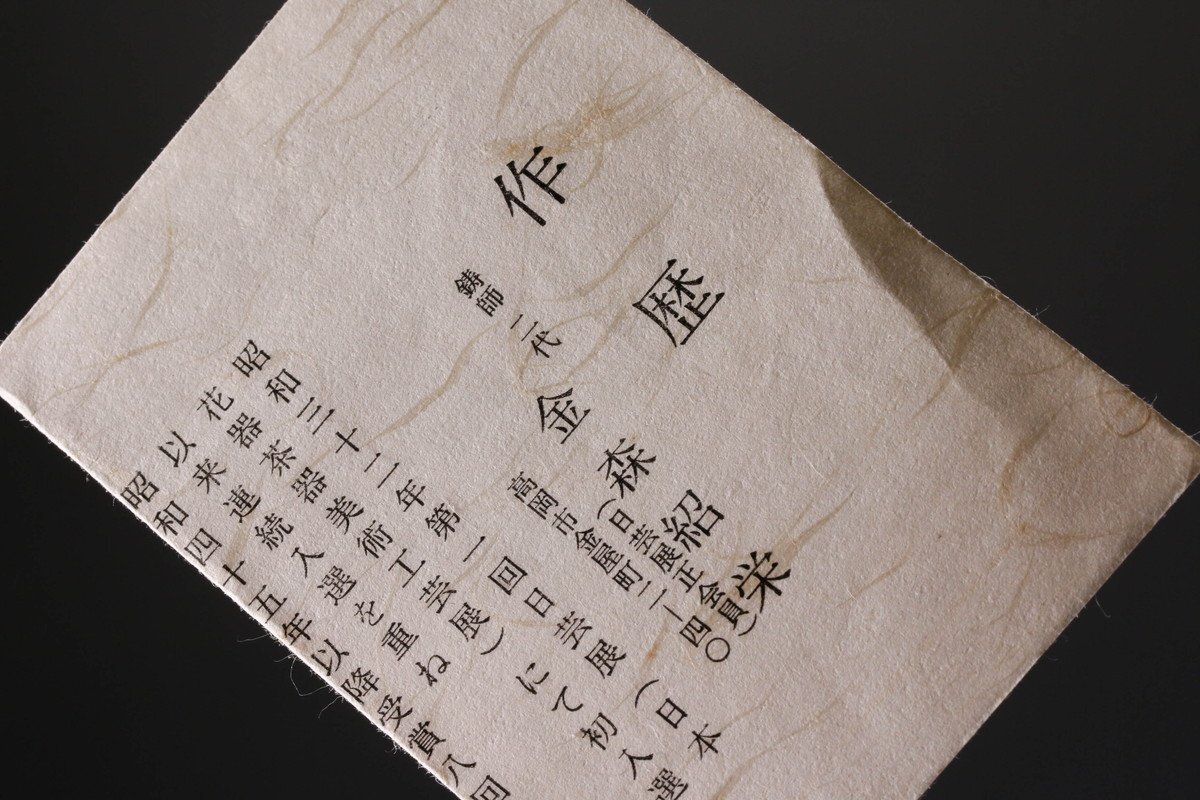 作歴
鋳師 二代 金森紹栄
（日芸展正会員）
高岡市金屋町二ー四〇
昭和三十二年第一回日芸展（日本
花器茶器美術工芸展）にて初入選
以来連続入選を重ね
昭和四十五年以降受賞八回